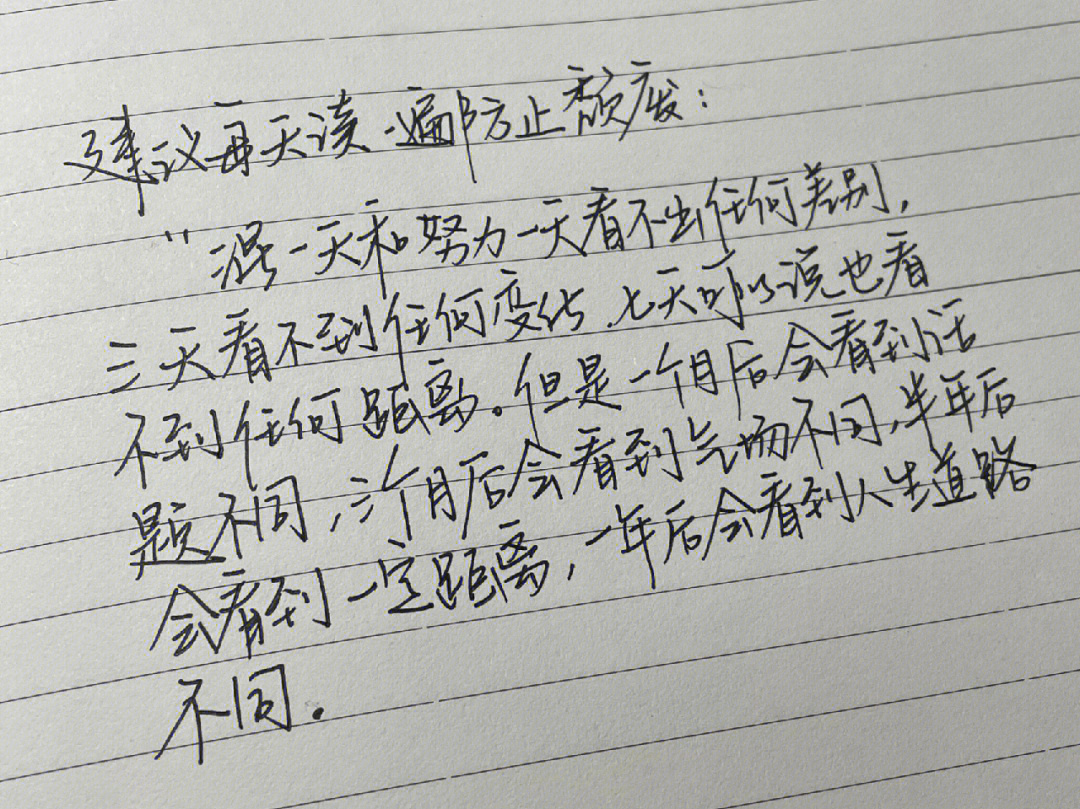 建议每天读一遍防止颓废:
"混一天和努力一天看不出任何差别,
三天看不到任何变化,七天可以说也看
不到任何距离。但是一个月后会看到话
题不同,三个月后会看到气场不同,半年后
会看到一定距离,一年后会看到人生道路
不同.